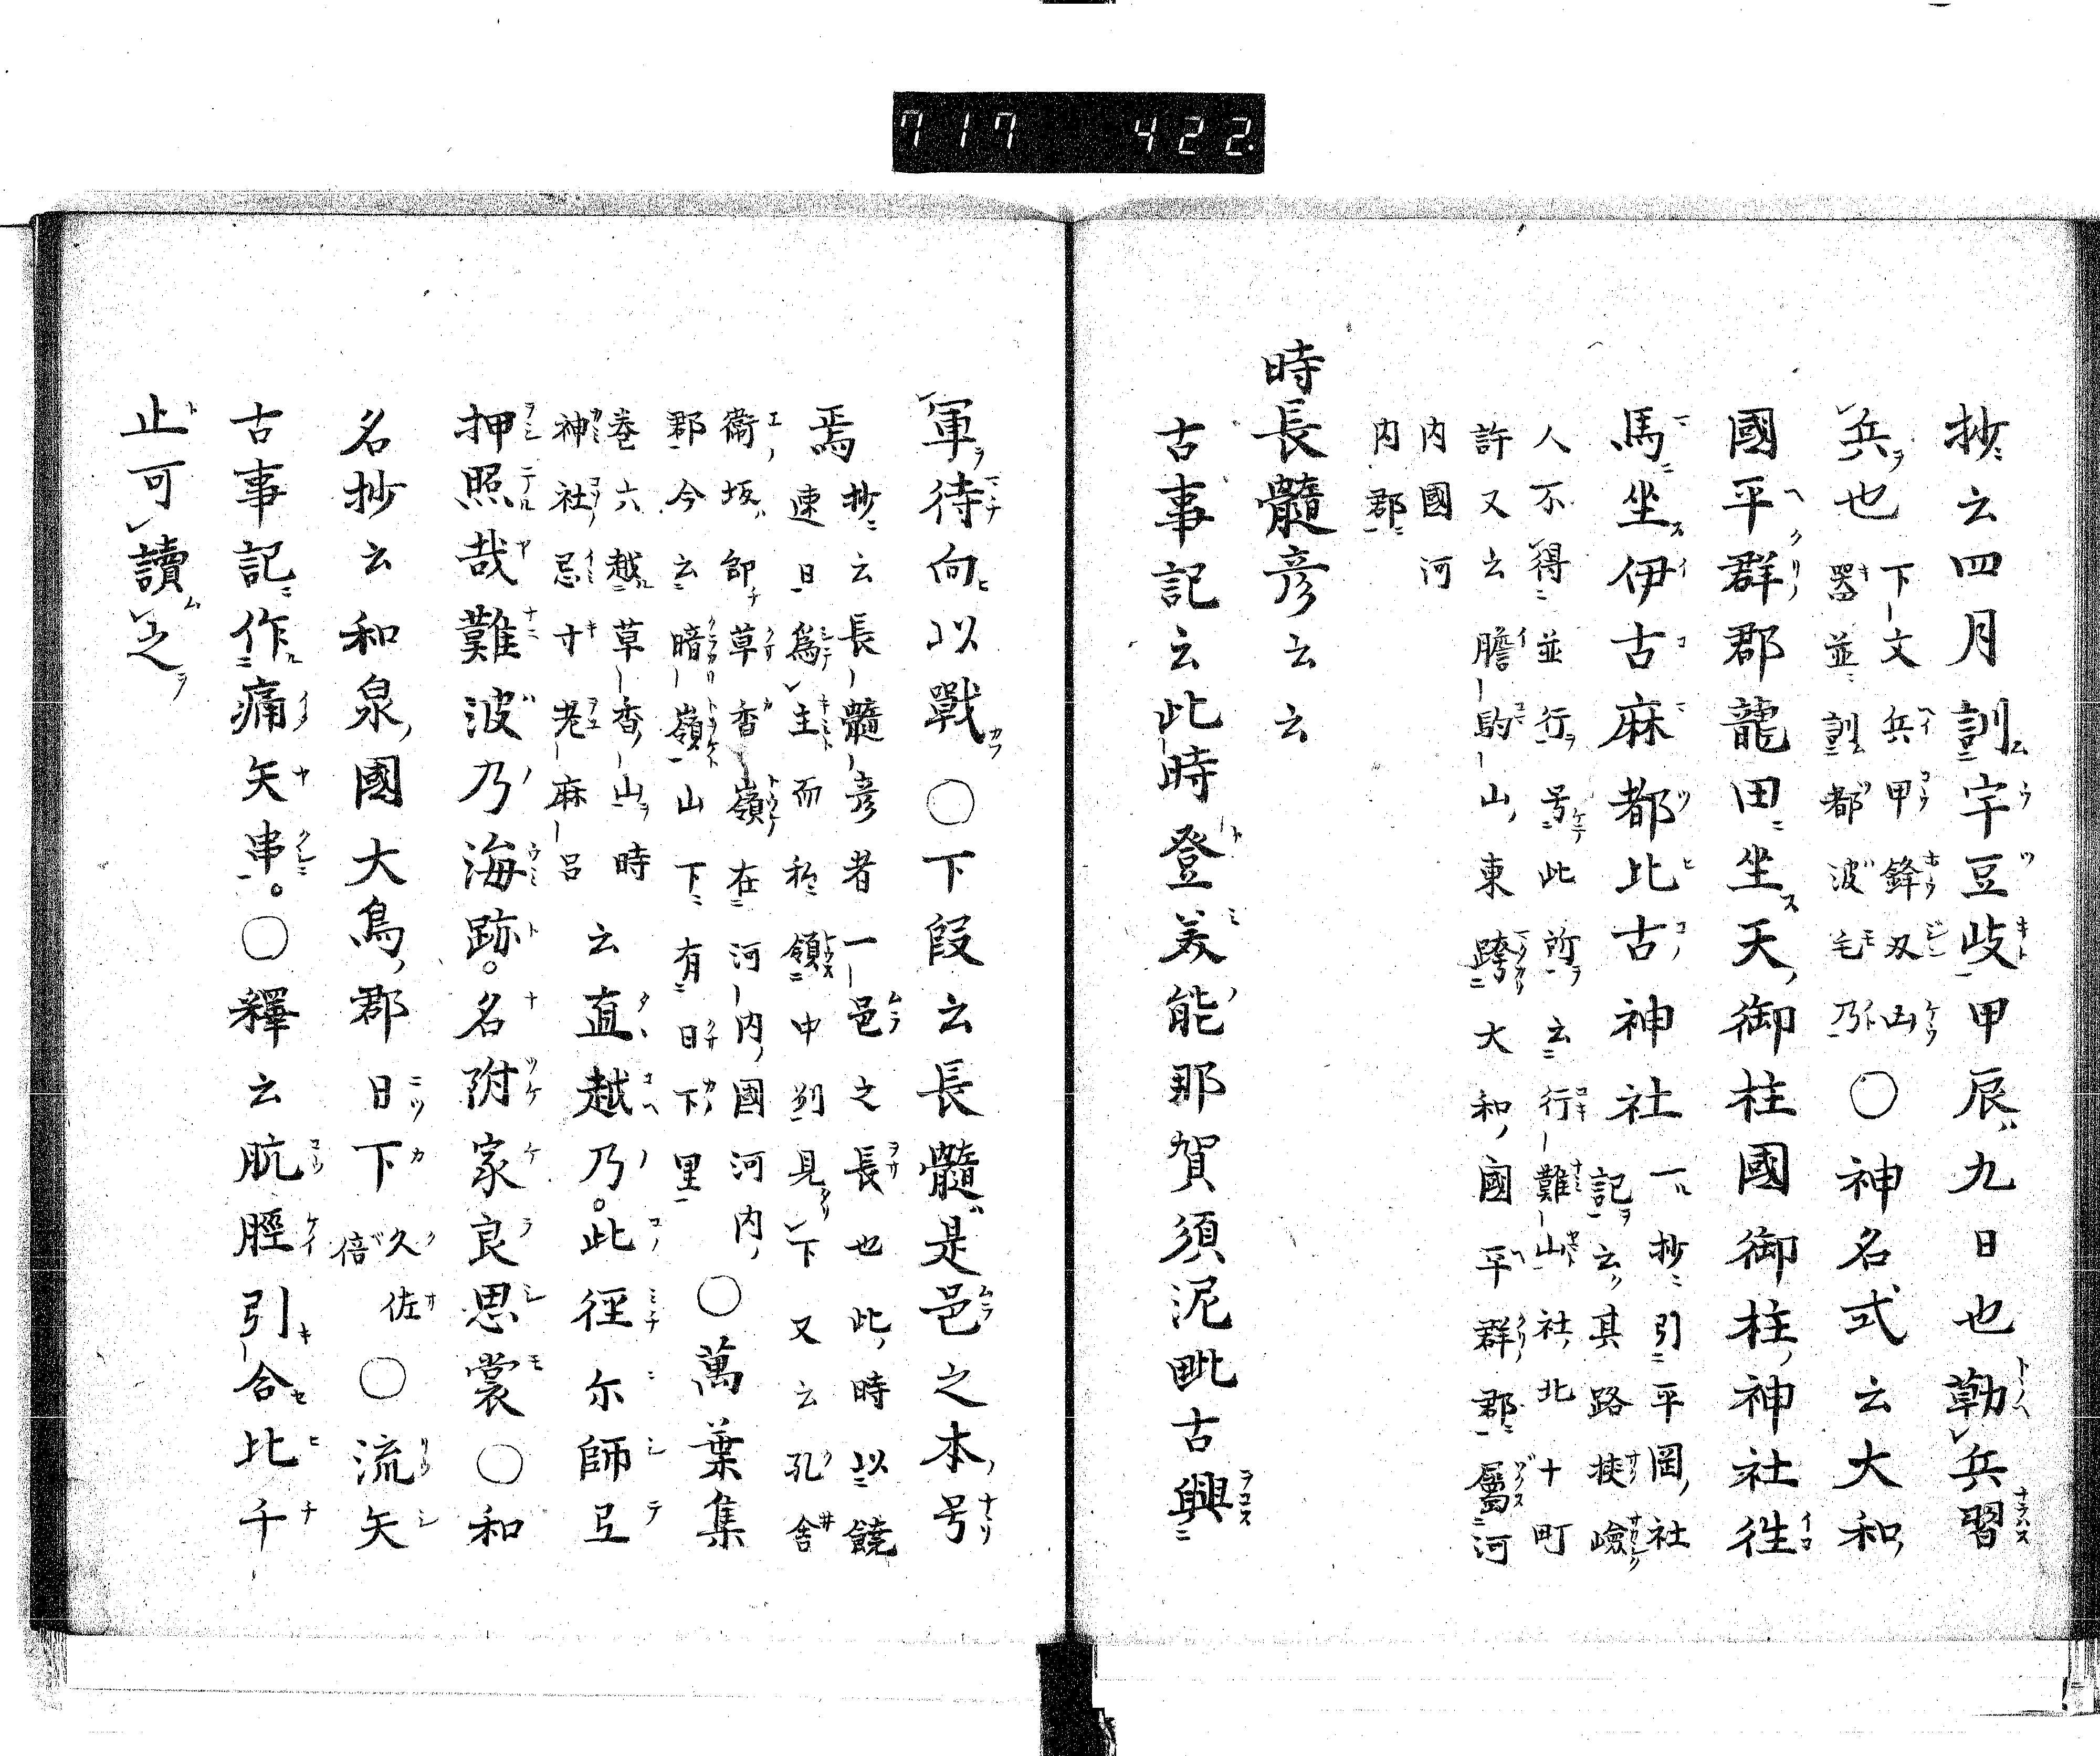 717 422.
抄云四月訓宇豆歧甲辰九日也勒兵習
兵也下文兵甲鋒刄
器並訓都波毛乃○神名式云大和
國平群郡龍田坐天御柱國御柱神社徃
馬坐伊古麻都比古神社一抄引平岡社
記云其路挾嶮
人不得並行号此所云行難山社北十町
許又云膽駒山東跨大和國平群郡屬河
内國河
内郡
時長髓彦云云
古事記云此時登美能那賀須泥毗古興
軍待向以戰○下段云長髓是邑之本号
焉抄云長髓彦者一邑之長也此時以饒
速日爲主而称領中別見下又云孔舎
衞坂卽草香嶺在河内國河内
郡今云暗嶺山下有日下里○萬葉集
巻六越草香山時
神社忌寸老麻呂云直越乃。此徑尓師弖
押照哉難波乃海跡。名附家良思裳○和
名抄云和泉國大鳥郡日下久佐
倍○流矢
古事記作痛矢串。○釋云肮脛引合比千
止可讀之